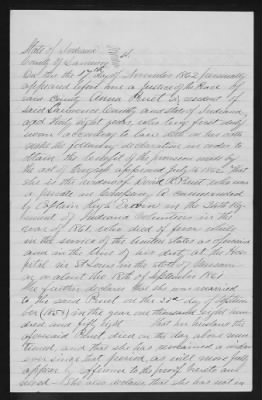 State of Indiana
County of Lawrence } ss.
On this the 17th day of November 1862 personally
appeared before me a Justice of the Peace of
said County Anna Pruet a resident of
said Lawrence County and State of Indiana
aged thirty eight years who being first duly
sworn according to law doth on her oath
make the following declaration in order to
obtain the benefit of the provision made by
the act of Congress approved July 14 1862 That
she is the widow of David Pruet who was
a private in Company commanded
by Captain Hugh Erwin in the 24th Reg
iment of Indiana Volunteers in the
war of 1861 who died of fever while
in the service of the United States as aforesaid
and in the line of his duty at the Hos
pital St Louis in the State of Missouri
on or about the 18th of September 1861
She further declares that she was married
to the said Pruet on the day of Septem
ber (1858) in the year one thousand eight hun
dred and fifty eight That her husband the
aforesaid Pruet died on the day above men
tioned, and that she has remained a widow
ever since that period, as will more fully
appear by reference to the proof hereto an
nexed - She also declares that she has not in